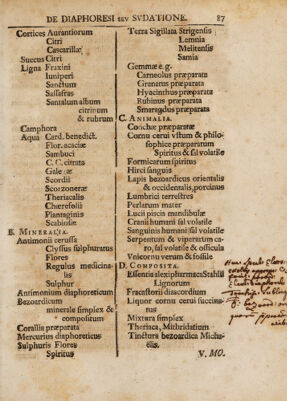 DE DIAPHORESI seu SVDATIONE. 87
Cortices Aurantiorum
Citri
Cascarillæ
Succus Citri
Ligna Fraxini
Iuniperi
Sanctum
Sassafras
Santalum album
citrinum
& rubrum
Camphora
Aqua Card. benedict.
Flor. acaciæ
Sambuci
C. C. citrata
Galegæ
Scordii
Scorzoneræ
Theriacalis
Chærefolii
Plantaginis
Scabiosæ
B. MINERALIA.
Antimonii cerussa
Clyssus sulphuratus
Flores
Regulus medicina-
lis
Sulphur
Antimonium diaphoreticum
Bezoardicum
minerale simplex &
compositum
Corallis præparata
Mercurius diaphoreticus
Sulphuris Flores
Spiritus
Terra Sigillata Strigensis
Lemnia
Melitensis
Samia
Gemmæ e. g.
Carneolus præparata
Grenatus præparata
Hyacinthus præparata
Rubinus præparata
Smaragdus præparata
C. ANIMALIA.
Conchæ præparatæ
Cornu cervi ustum & philo-
sophice præparatum
Spiritus & sal volatile
Formicarum spiritus
Hirci sanguis
Lapis bezoardicus orientalis
& occidentalis, porcinus
Lumbrici terrestres
Perlarum mater
Lucii piscis mandibulæ
Cranii humani sal volatile
Sanguinis humani sal volatile
Serpentum & viperarum ca-
ro, sal volatile & ossicula
Unicornu verum & fossile
D. COMPOSITA.
Essentia alexipharmaca Stahlii
Lignorum
Fracastorii diascordium
Liquor cornu cervi succina-
tus
Mixtura simplex
Theriaca, Mithridatium
Tinctura bezoardica Micha-
elis.
V. MO.